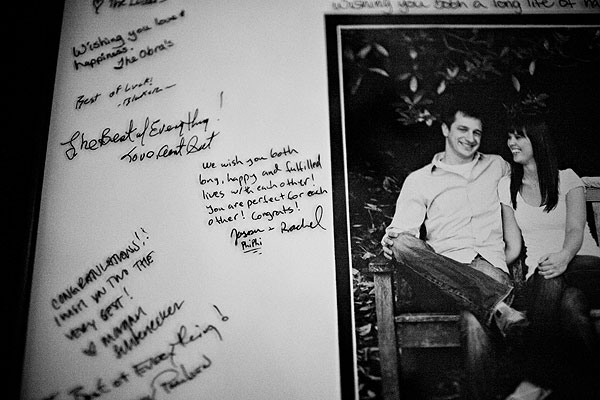 ♡ The
wishing you both a long life of ha
Wishing you love &
happiness.
The Obra's
Best of Luck!
The Best of Everything!
Love Aunt
we wish you both
long, happy and fulfilled
lives with each other!
You are perfect for each
other! Congrats!
Jason + Rachel
PhiPhi
CONGRATULATIONS!!
THE
VERY BEST!
♡ MEGAN
Best of Everything!